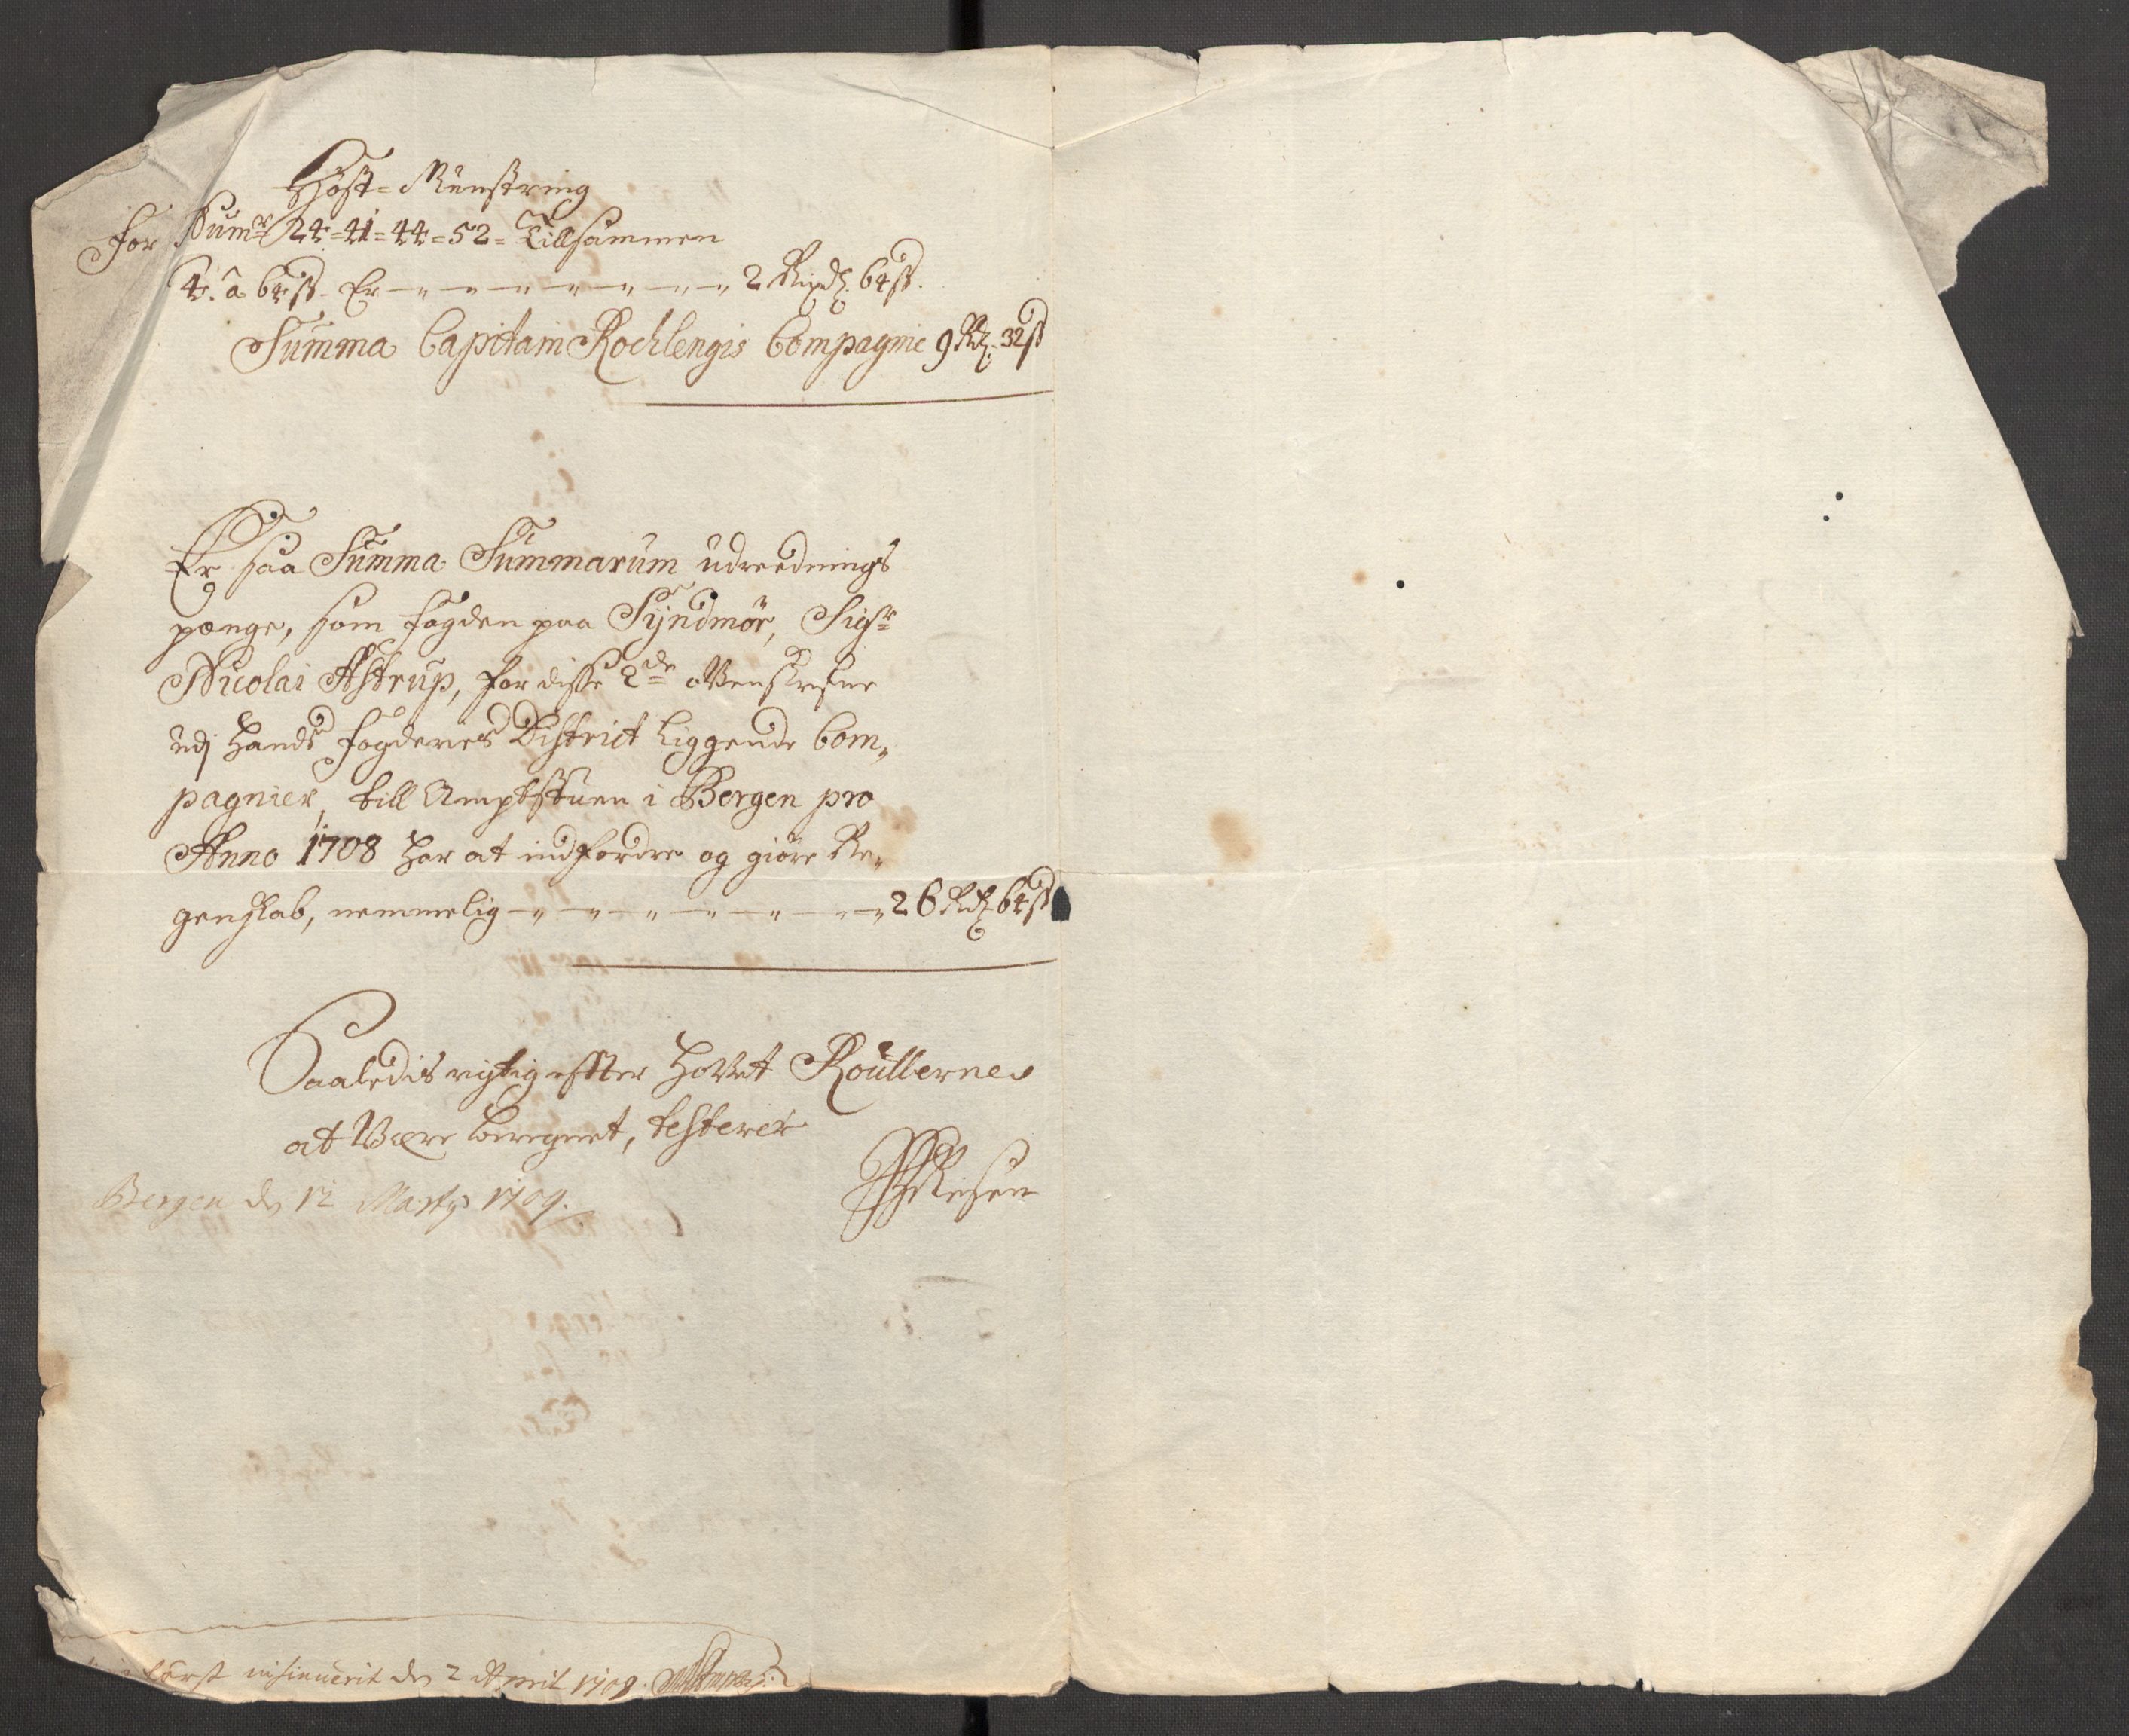 Höst-Mùnstring
for Numr 24=41=44=52= Tillsammen
4. â 64 ß. Er — " — " — " — " — 2 Rixdr. 64 ß.
Summa Capitain Rochlengis Compagnie 9 Rdr. 32 ß
Er saa Summa Summarum udreednings
penge, som fogden paa Syndmør, Sigr
Nicolai Astrup, for disse 2de ovenskrefne
udj hands fogderies District liggende Com„
pagnier, till Amptstuen i Bergen pro
Anno 1708 har at indfordre og giöre Re„
genskab, nemmelig — " — " — " — " — 26 Rdr. 64 ß
Saaledis rigtig effter hosset Roullernes
at være beregnet, testerer
Bergen d. 12 Marty 1709.
först insinuerit den 2 April 1709.